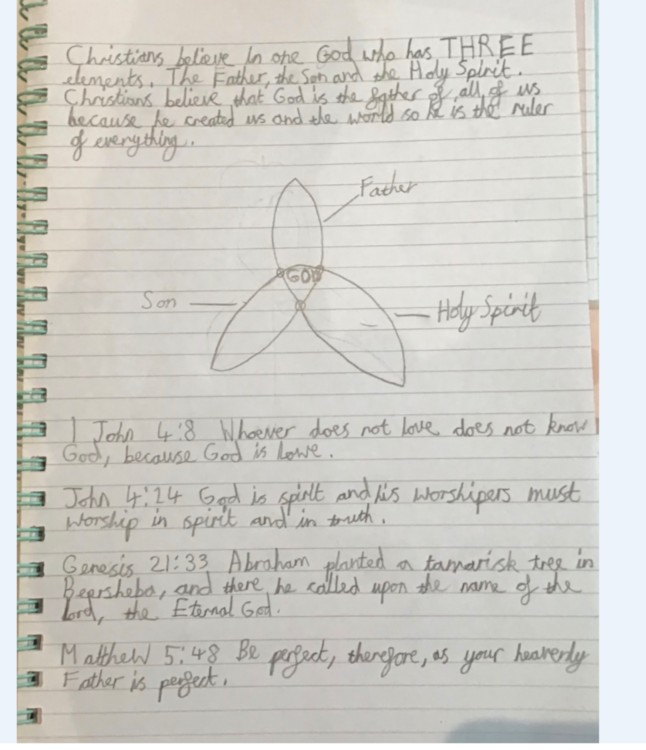 Christians believe in one God who has THREE
elements. The Father, the Son and the Holy Spirit.
Christians believe that God is the father of all of us
because he created us and the world so he is the ruler
of everything.
Father
GOD
Son
Holy Spirit
1 John 4:8 Whoever does not love does not know
God, because God is love.
John 4:24 God is spirit and his worshipers must
worship in spirit and in truth.
Genesis 21:33 Abraham planted a tamarisk tree in
Beersheba, and there he called upon the name of the
Lord, the Eternal God.
Matthew 5:48 Be perfect, therefore, as your heavenly
Father is perfect.